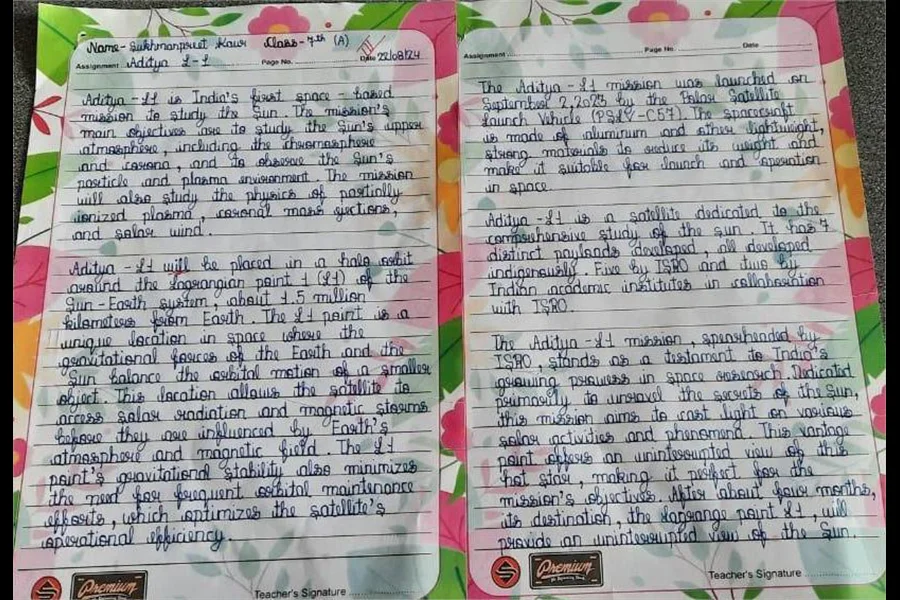 Name- Sukhmanpreet Kaur Class- 7th (A)
Assignment Aditya L-1 Page No. Date 22/08/24
Aditya - L1 is India's first space - based
mission to study the Sun. The mission's
main objectives are to study the Sun's upper
atmosphere, including the chromosphere
and corona, and to observe the Sun's
particle and plasma environment. The mission
will also study the physics of partially
ionized plasma, coronal mass ejections,
and solar wind.
Aditya - L1 will be placed in a halo orbit
around the Lagrangian point 1 (L1) of the
Sun - Earth system, about 1.5 million
kilometers from Earth. The L1 point is a
unique location in space where the
gravitational forces of the Earth and the
Sun balance the orbital motion of a smaller
object. This location allows the satellite to
access solar radiation and magnetic storms
before they are influenced by Earth's
atmosphere and magnetic field. The L1
point's gravitational stability also minimizes
the need for frequent orbital maintenance
efforts, which optimizes the satellite's
operational efficiency.
S
Premium
Teacher's Signature
Assignment Page No. Date
The Aditya - L1 mission was launched on
September 2, 2023 by the Polar Satellite
Launch Vehicle (PSLV-C57). The spacecraft
is made of aluminum and other lightweight,
strong materials to reduce its weight and
make it suitable for launch and operation
in space.
Aditya - L1 is a satellite dedicated to the
comprehensive study of the sun. It has 7
distinct payloads developed, all developed
indigenously. Five by ISRO and two by
Indian academic institutes in collaboration
with ISRO.
The Aditya - L1 mission, spearheaded by
ISRO, stands as a testament to India's
growing prowess in space research. Dedicated
primarily to unravel the secrets of the Sun,
this mission aims to cast light on various
solar activities and phenomena. This vantage
point offers an uninterrupted view of this
hot star, making it perfect for the
mission's objectives. After about four months,
its destination, the lagrange point L1, will
provide an uninterrupted view of the Sun.
S
Premium
Teacher's Signature